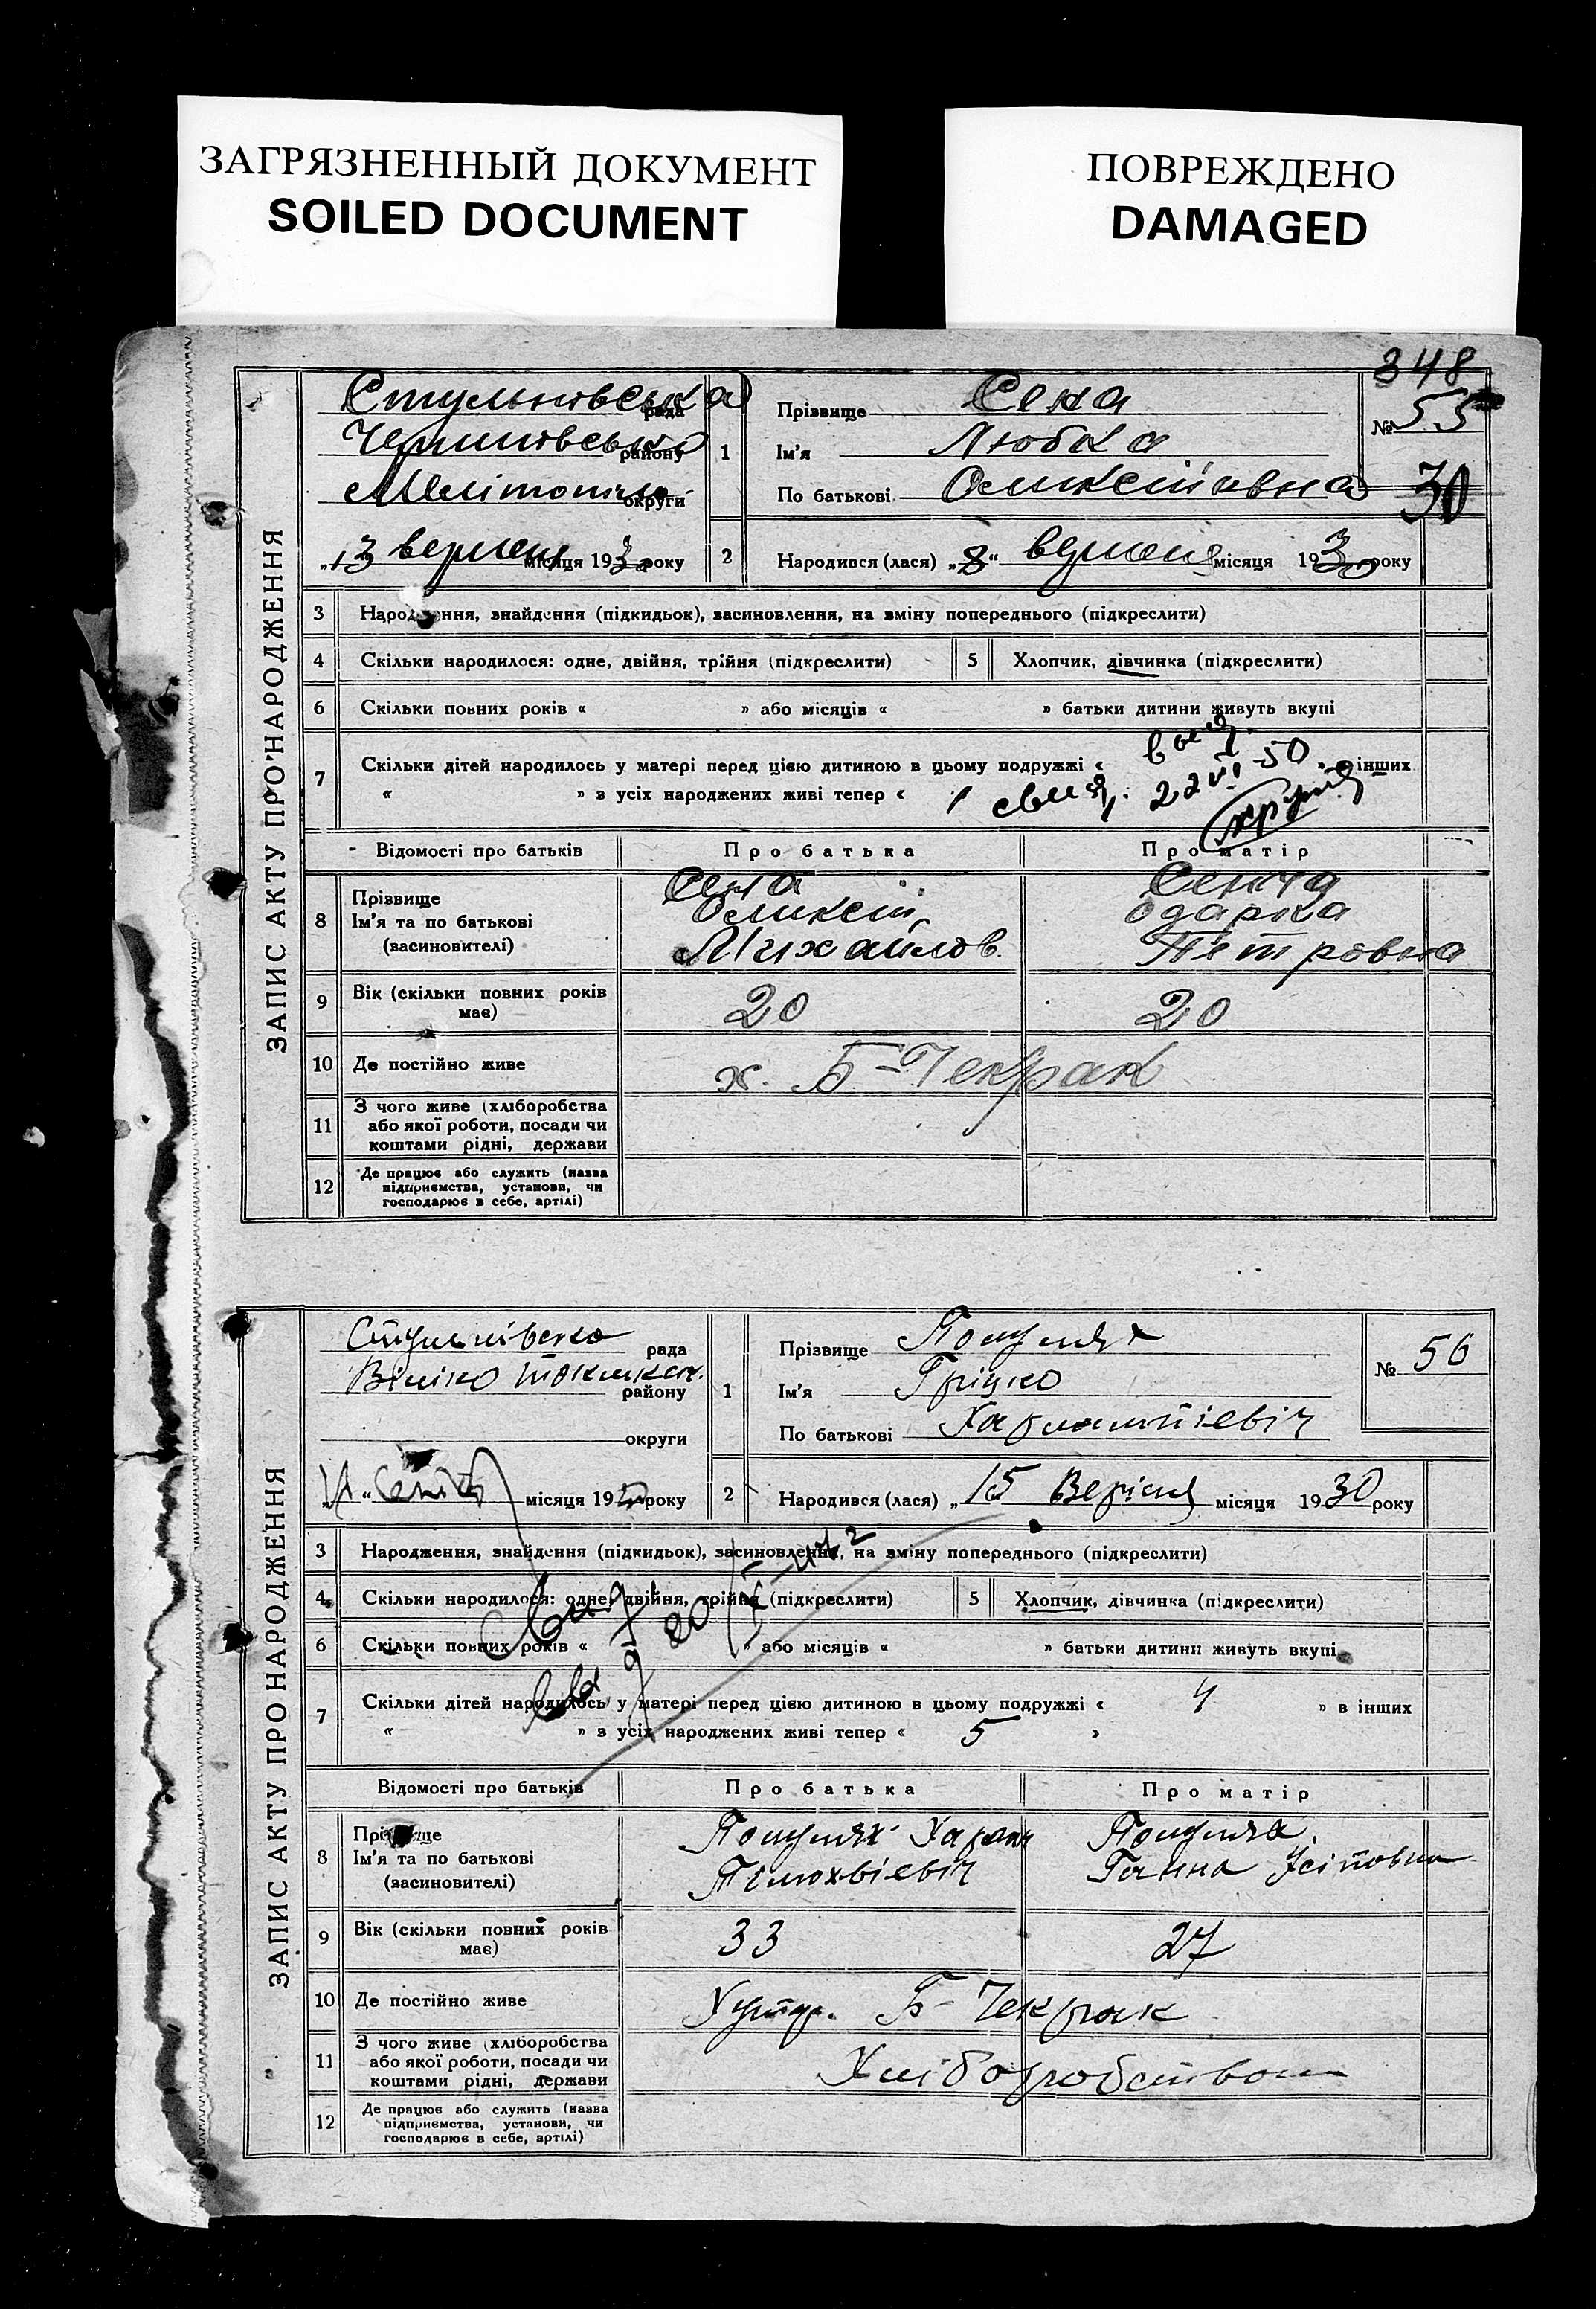 ЗАГРЯЗНЕННЫЙ ДОКУМЕНТ
SOILED DOCUMENT
ПОВРЕЖДЕНО
DAMAGED
348
ЗАПИС АКТУ ПРО НАРОДЖЕННЯ
рада
району
округи
„13 вересня місяця 1930 року
1
Прізвище Сена
Ім'я Любка
По батькові
№ 55
30
2
Народився (лася) „8“ вересня місяця 1930 року
3 Народження, знайдення (підкидьок), засиновлення, на зміну попереднього (підкреслити)
4 Скільки народилося: одне, двійня, трійня (підкреслити)
5 Хлопчик, дівчинка (підкреслити)
6 Скільки повних років « » або місяців « » батьки дитини живуть вкупі
7 Скільки дітей народилось у матері перед цією дитиною в цьому подружжі « » в інших
« » з усіх народжених живі тепер « 1
22 VI 50
Відомості про батьків
Про батька
Про матір
8 Прізвище
Ім'я та по батькові
(засиновителі)
Сена
Михайлов.
Одарка
Петровна
9 Вік (скільки повних років має)
20
20
10 Де постійно живе
х. Б-Чекрак
11 З чого живе (хліборобства
або якої роботи, посади чи
коштами рідні, держави
12 Де працює або служить (назва
підприємства, установи, чи
господарює в себе, артілі)
ЗАПИС АКТУ ПРО НАРОДЖЕННЯ
рада
району
округи
місяця 19 року
1
Прізвище
Ім'я Гріцко
По батькові Харлампіевіч
№ 56
2
Народився (лася) „15 Верісня місяця 1930 року
3 Народження, знайдення (підкидьок), засиновлення, на зміну попереднього (підкреслити)
4 Скільки народилося: одне, двійня, трійня (підкреслити)
5 Хлопчик, дівчинка (підкреслити)
6 Скільки повних років « » або місяців « » батьки дитини живуть вкупі
7 Скільки дітей народилось у матері перед цією дитиною в цьому подружжі « 4 » в інших
« » з усіх народжених живі тепер « 5 »
Відомості про батьків
Про батька
Про матір
8 Прізвище
Ім'я та по батькові
(засиновителі)
Ганна
9 Вік (скільки повних років має)
33
27
10 Де постійно живе
Б-Чекрак
11 З чого живе (хліборобства
або якої роботи, посади чи
коштами рідні, держави
Хліборобством
12 Де працює або служить (назва
підприємства, установи, чи
господарює в себе, артілі)